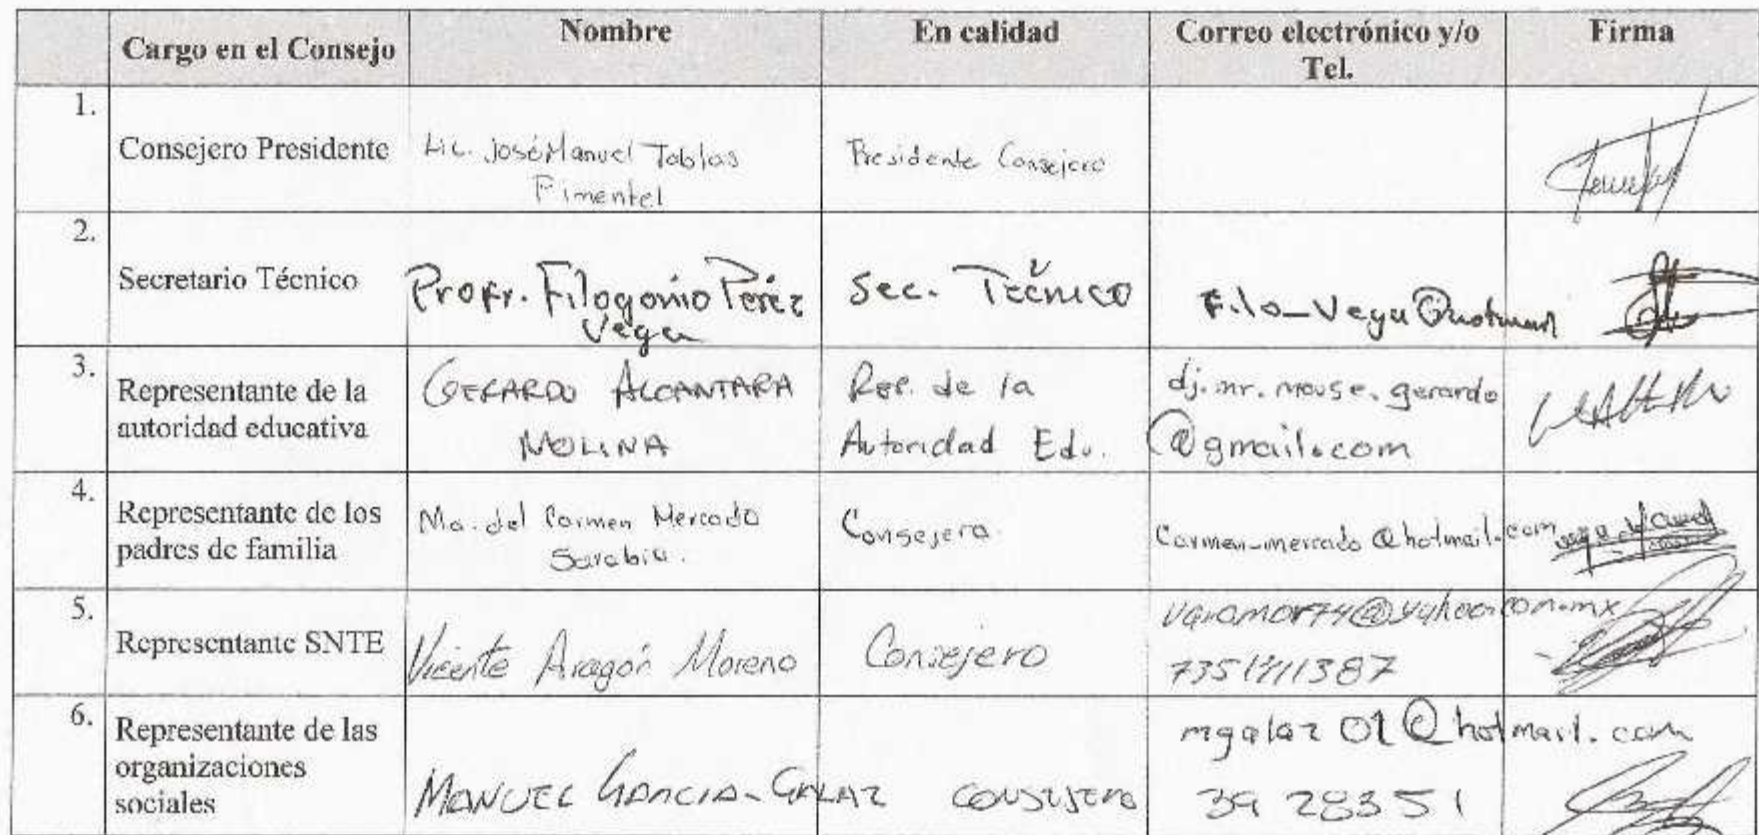 Cargo en el Consejo
Nombre
En calidad
Correo electrónico y/o
Tel.
Firma
1.
Consejero Presidente
Lic. José Manuel Tablas
Pimentel
Presidente Consejero
2.
Secretario Técnico
Profr. Filogonio Pérez
Vega
Sec. Técnico
3.
Representante de la
autoridad educativa
GERARDO ALCANTARA
MOLINA
Rep. de la
Autoridad Edu.
dj.mr.mouse.gerardo
@gmail.com
4.
Representante de los
padres de familia
Ma. del Carmen Mercado
Sarabia.
Consejera.
Carmen-mercado@hotmail.com
5.
Representante SNTE
Vicente Aragón Moreno
Consejero
6.
Representante de las
organizaciones
sociales
MANUEL GARCIA-GALAZ
CONSEJERO
mgalaz01@hotmail.com
39 28351